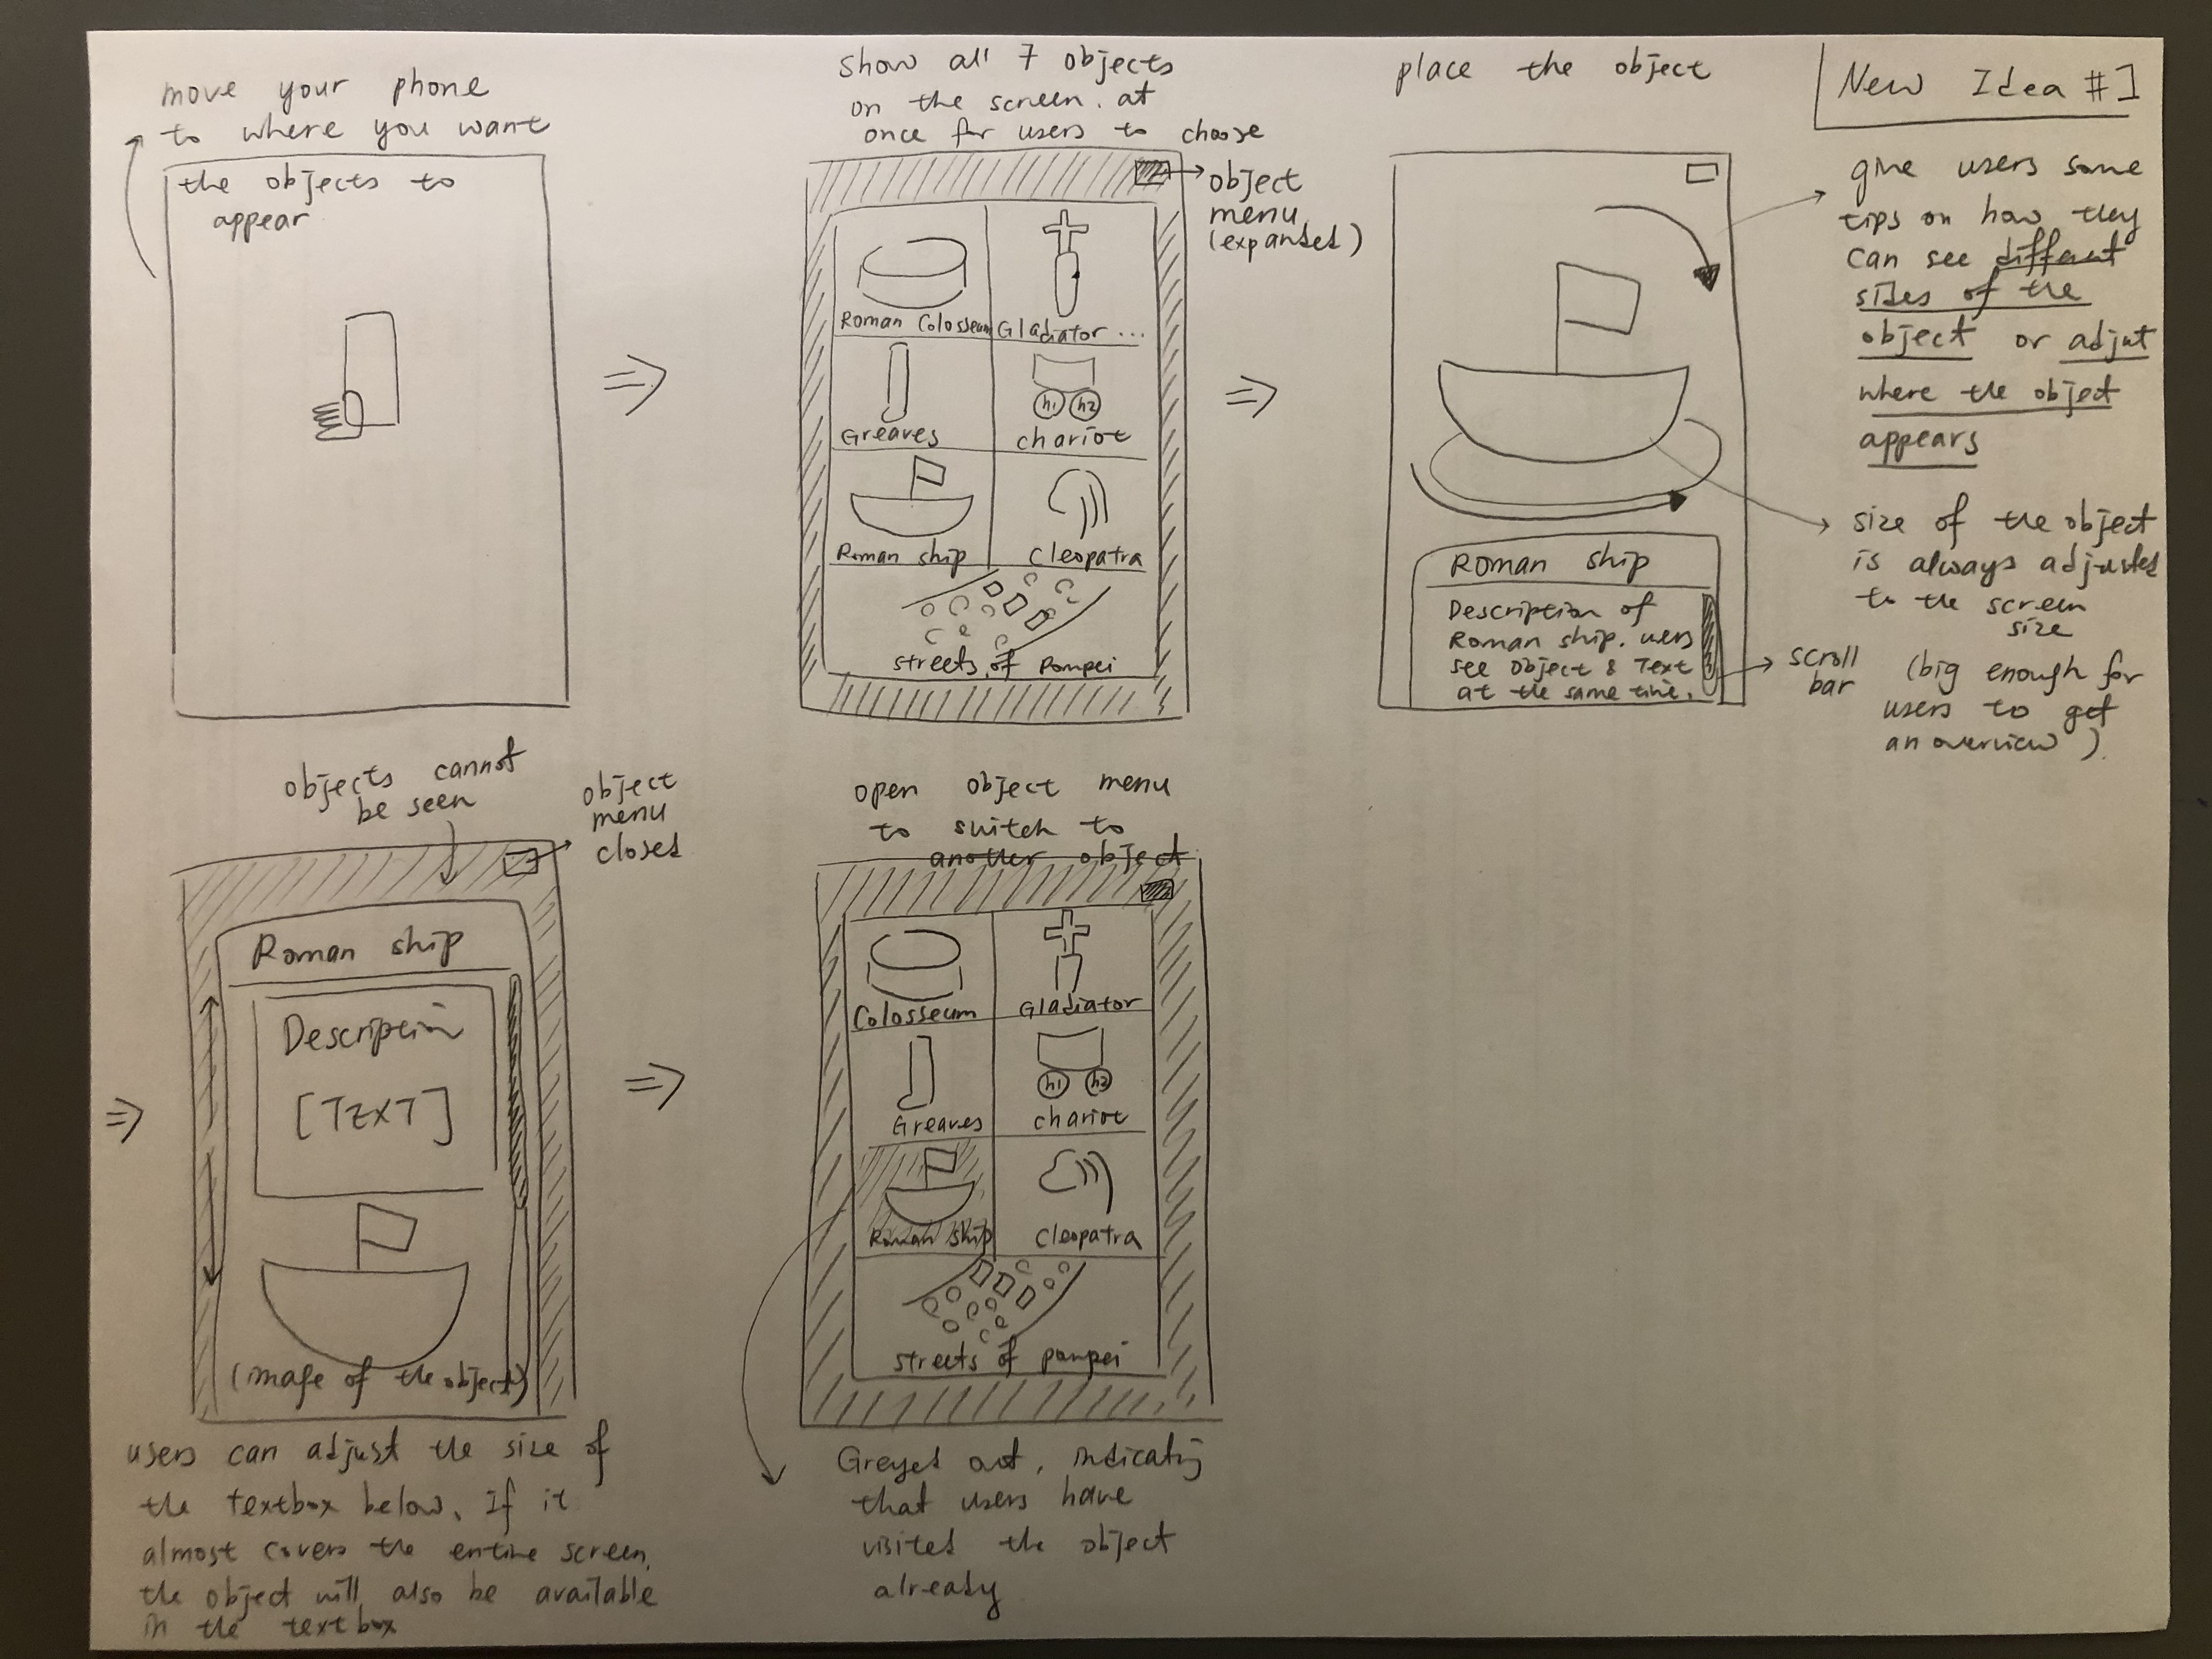 New Idea #1
move your phone
to where you want
the objects to
appear
show all 7 objects
on the screen. at
once for users to choose
object
menu
(expanded)
Roman Colosseum
Gladiator ...
Greaves
h1 h2
chariot
Roman ship
Cleopatra
streets of Pompei
place the object
give users some
tips on how they
can see different
sides of the
object or adjut
where the object
appears
size of the object
is always adjusted
to the screen
size
(big enough for
users to get
an overview).
Roman ship
Description of
Roman ship. uers
see object & Text
at the same time.
scroll
bar
objects cannot
be seen
object
menu
closed
Roman ship
Description
[TEXT]
(image of the object)
users can adjust the size of
the textbox below. If it
almost covers the entire screen,
the object will also be available
in the textbox
open object menu
to switch to
another object
Colosseum
Gladiator
Greaves
h1 h2
chariot
Roman ship
Cleopatra
streets of pompei
Greyed out, indicating
that users have
visited the object
already